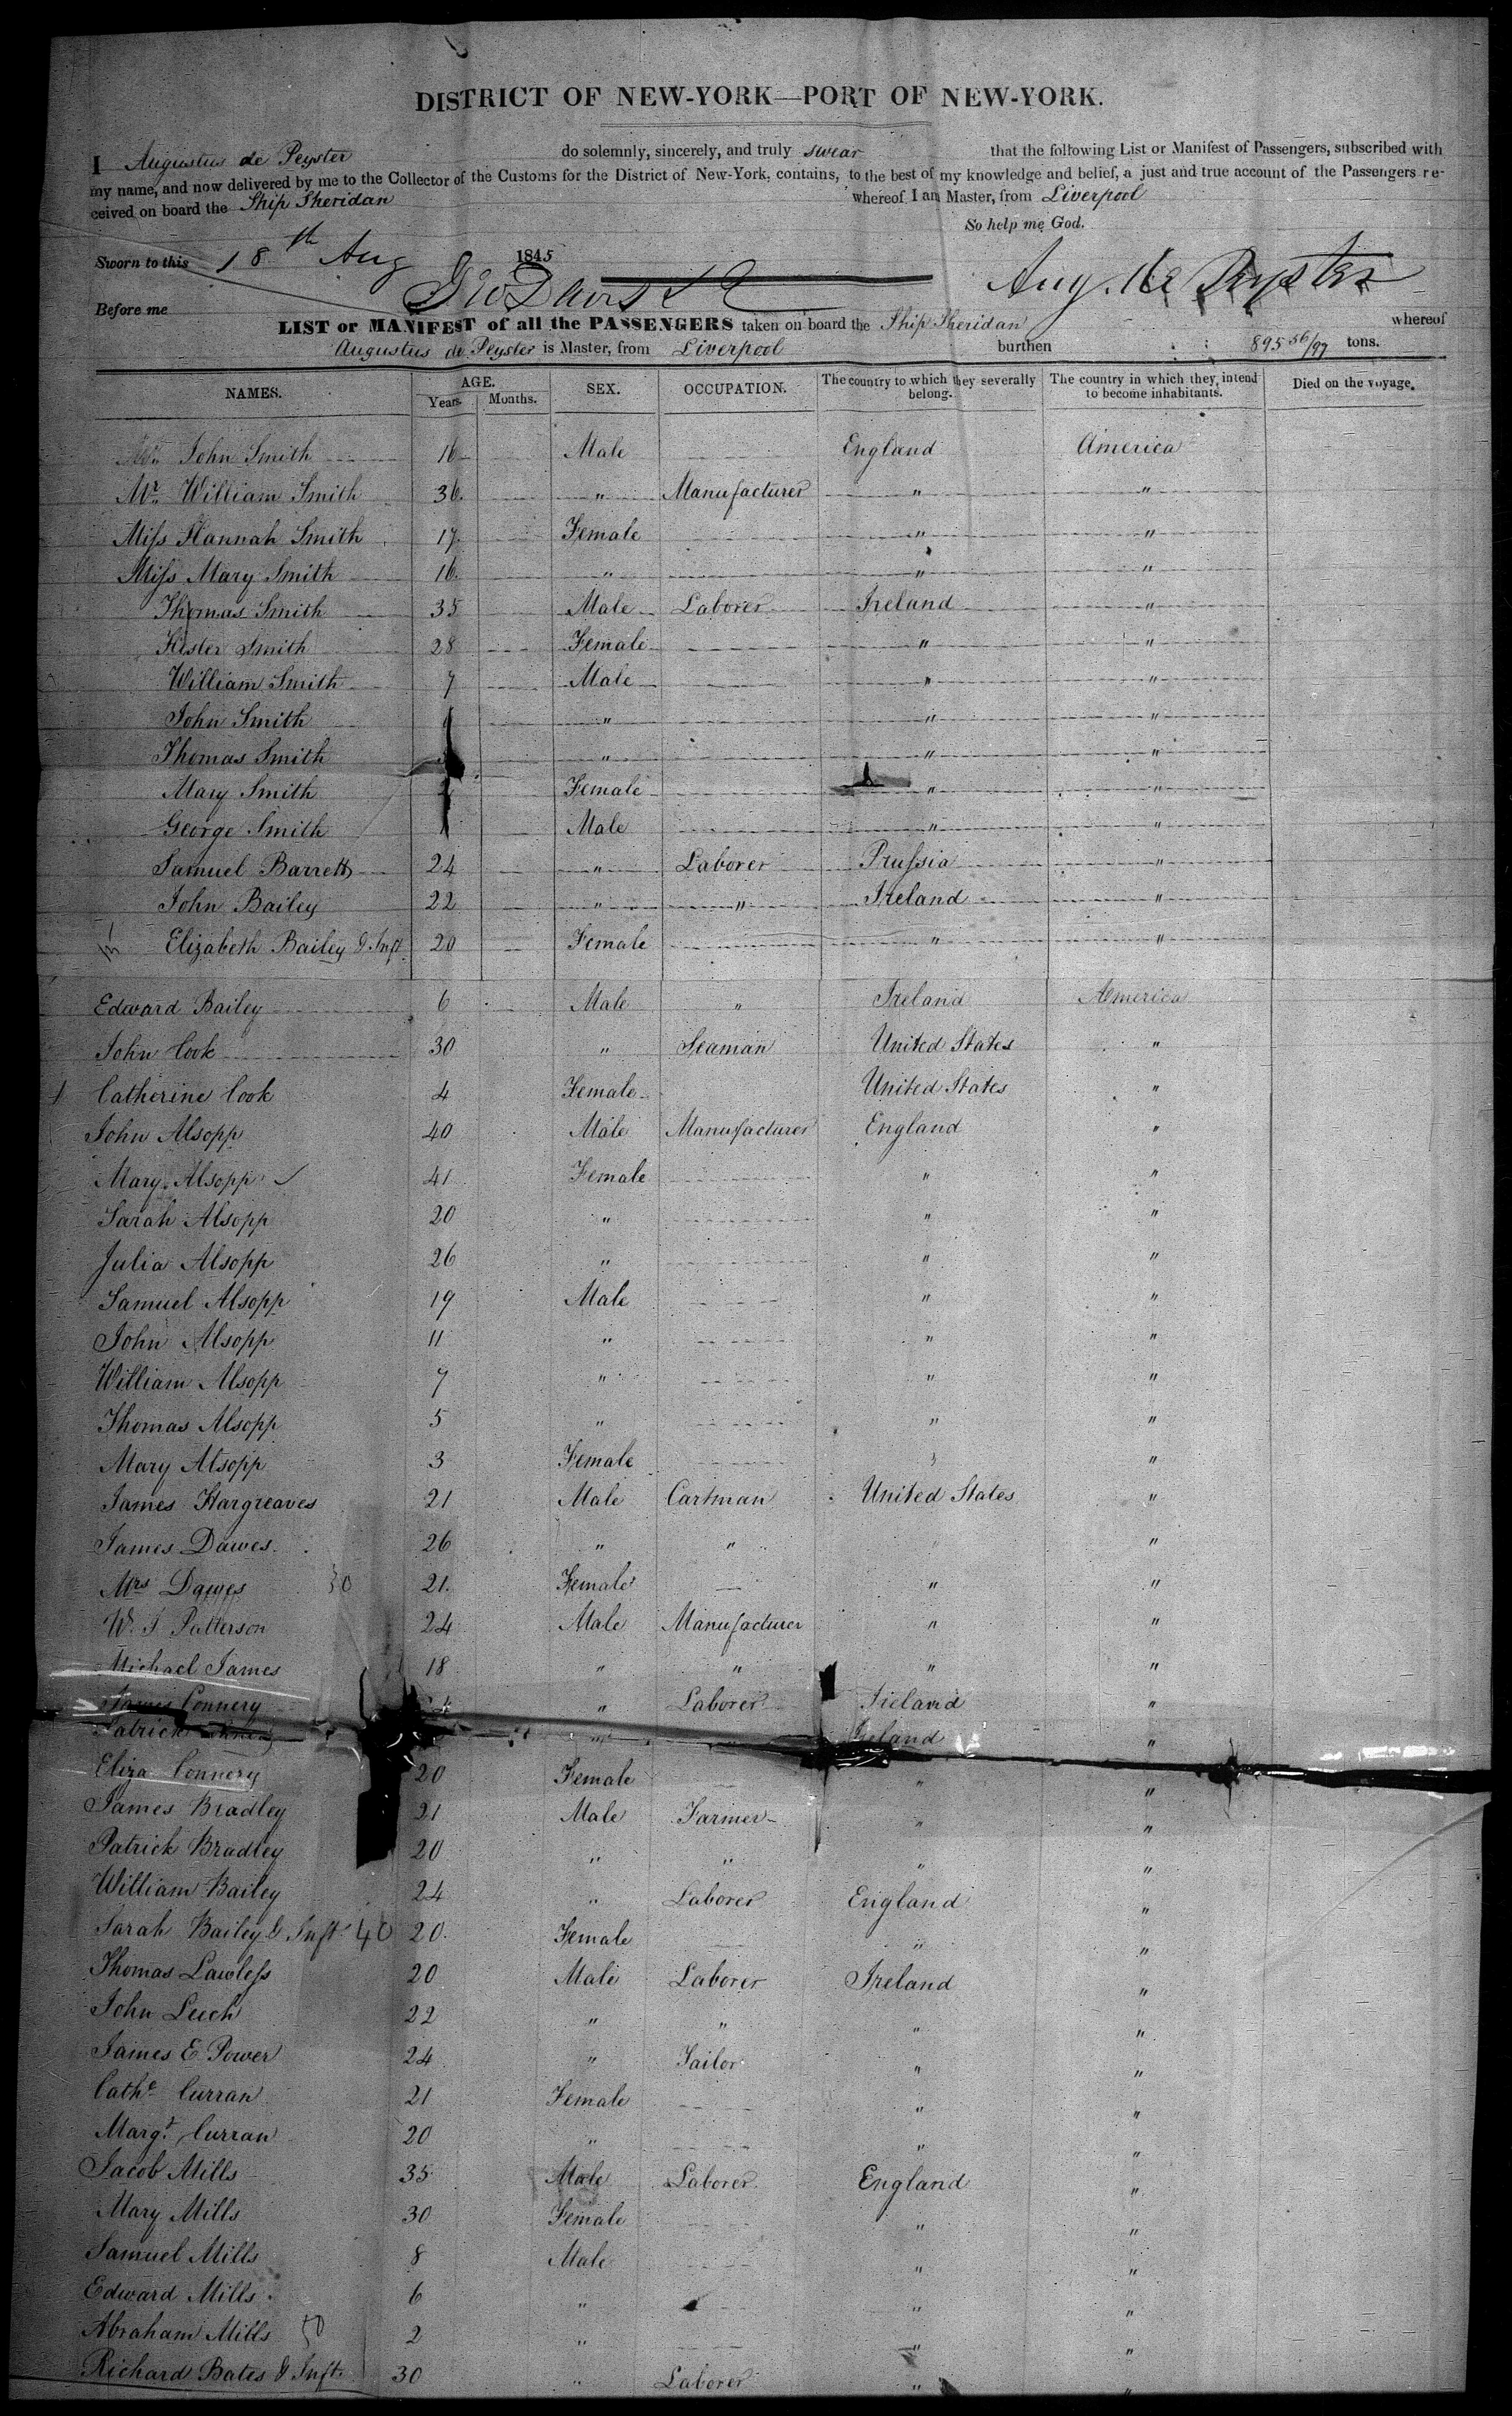 DISTRICT OF NEW-YORK—PORT OF NEW-YORK.
I Augustus de Peyster do solemnly, sincerely, and truly swear that the following List or Manifest of Passengers, subscribed with
my name, and now delivered by me to the Collector of the Customs for the District of New-York, contains, to the best of my knowledge and belief, a just and true account of the Passengers re-
ceived on board the Ship Sheridan whereof I am Master, from Liverpool
So help me God.
Sworn to this 18th Aug 1845
Before me Aug. de Peyster
LIST or MANIFEST of all the PASSENGERS taken on board the Ship Sheridan whereof
Augustus de Peyster is Master, from Liverpool burthen 895 56/97 tons.
NAMES. AGE. Years. Months. SEX. OCCUPATION. The country to which they severally belong. The country in which they intend to become inhabitants. Died on the voyage.
John Smith 16 Male England America
Mr. William Smith 36 " Manufacturer " "
Miss Hannah Smith 17 Female " "
Miss Mary Smith 16 " " "
Thomas Smith 35 Male Laborer Ireland "
Hester Smith 28 Female " "
William Smith 7 Male " "
John Smith " " "
Thomas Smith " " "
Mary Smith Female " "
George Smith Male " "
Samuel Barrett 24 " Laborer Prussia "
John Bailey 22 " " Ireland "
Elizabeth Bailey & Inft. 20 Female " "
Edward Bailey 6 Male " Ireland America
John Cook 30 " Seaman United States "
Catherine Cook 4 Female United States "
John Alsopp 40 Male Manufacturer England "
Mary Alsopp 41 Female " "
Sarah Alsopp 20 " " "
Julia Alsopp 26 " " "
Samuel Alsopp 19 Male " "
John Alsopp 11 " " "
William Alsopp 7 " " "
Thomas Alsopp 5 " " "
Mary Alsopp 3 Female " "
James Hargreaves 21 Male Cartman United States "
James Dawes 26 " " " "
Mrs Dawes 30 21 Female " "
W. J. Patterson 24 Male Manufacturer " "
Michael James 18 " " " "
James Connery " Laborer Ireland "
Patrick " Ireland "
Eliza Connery 20 Female " "
James Bradley 21 Male Farmer " "
Patrick Bradley 20 " " " "
William Bailey 24 " Laborer England "
Sarah Bailey & Inft 40 20 Female " "
Thomas Lawless 20 Male Laborer Ireland "
John Leech 22 " " " "
James E Power 24 " Tailor " "
Cathe Curran 21 Female " "
Margt. Curran 20 " " "
Jacob Mills 35 Male Laborer England "
Mary Mills 30 Female " "
Samuel Mills 8 Male " "
Edward Mills 6 " " "
Abraham Mills 50 2 " " "
Richard Bates & Inft. 30 " Laborer " "